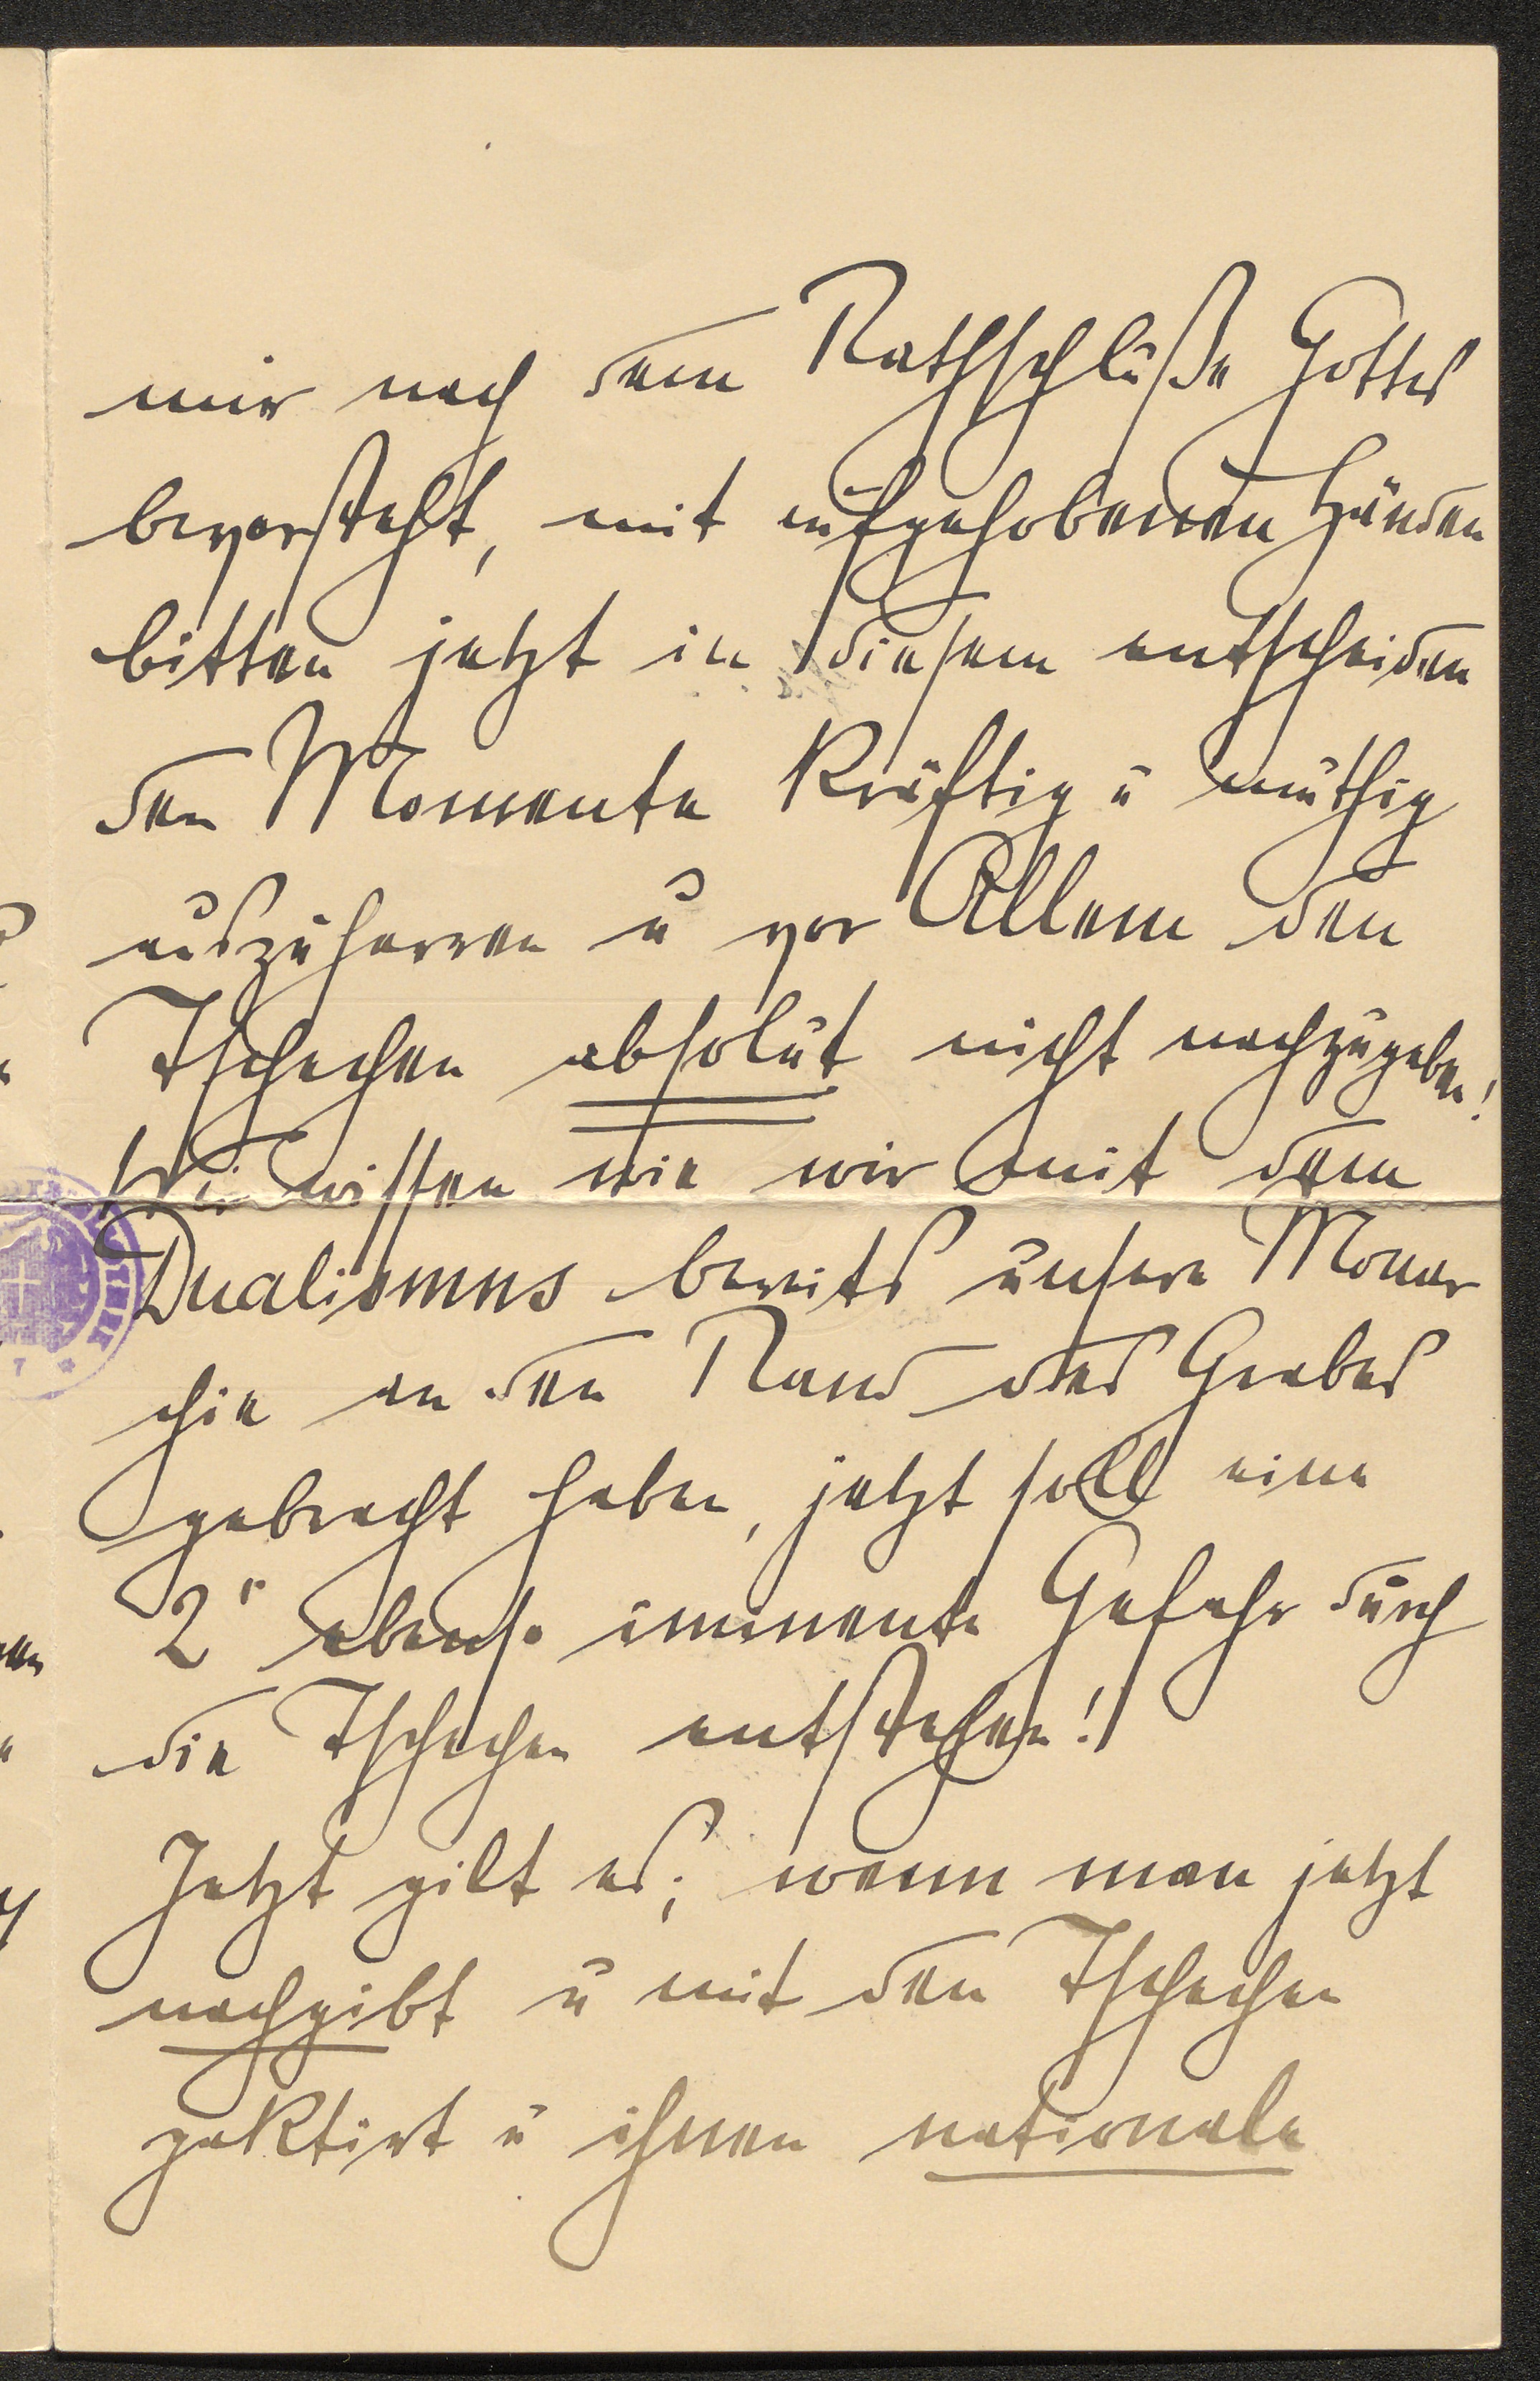 mir nach dem Rathschluße Gottes
bevorsteht, mit aufgehobenen Händen
bitten jetzt in diesem entscheiden
den Momente kräftig u muthig
auszuharren u vor Allem den
Tschechen absolut nicht nachzugeben!
Wir wissen wie wir mit dem
Dualismus bereits unsere Monar
chie an den Rand des Grabes
gebracht haben, jetzt soll eine
2te ebenso imminente Gefahr durch
die Tschechen entstehen!
Jetzt gilt es; wenn man jetzt
nachgibt u mit den Tschechen
paktirt u ihnen nationale